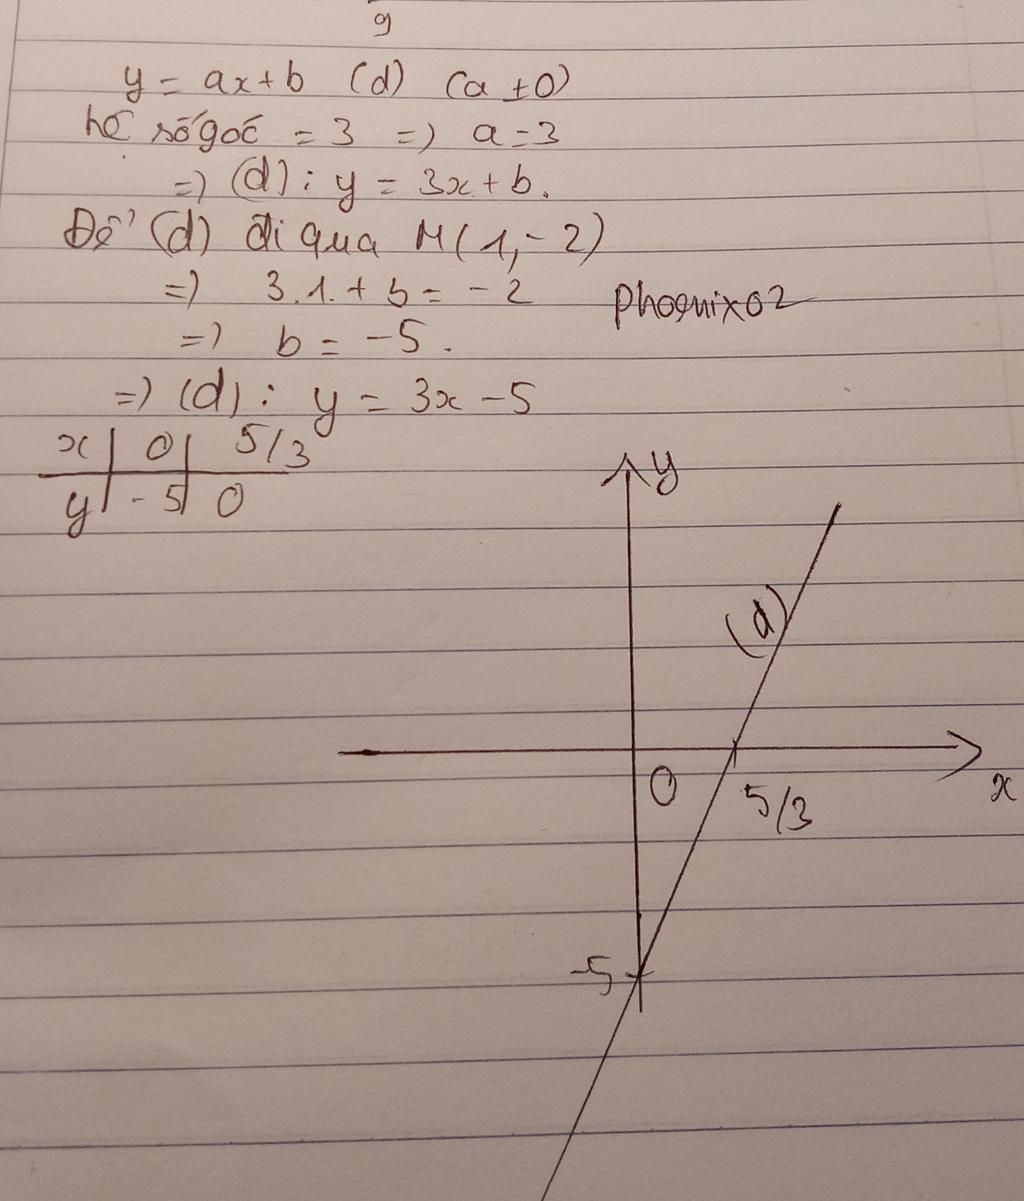 9
y = ax + b (d) (a ≠ 0)
hệ số góc = 3 => a = 3
=> (d) : y = 3x + b.
Để (d) đi qua M(1,-2)
=> 3.1. + b = -2
Phoenix02
=> b = -5.
=> (d) : y = 3x - 5
x | 0 | 5/3
y | -5 | 0
y
(d)
0
5/3
x
-5